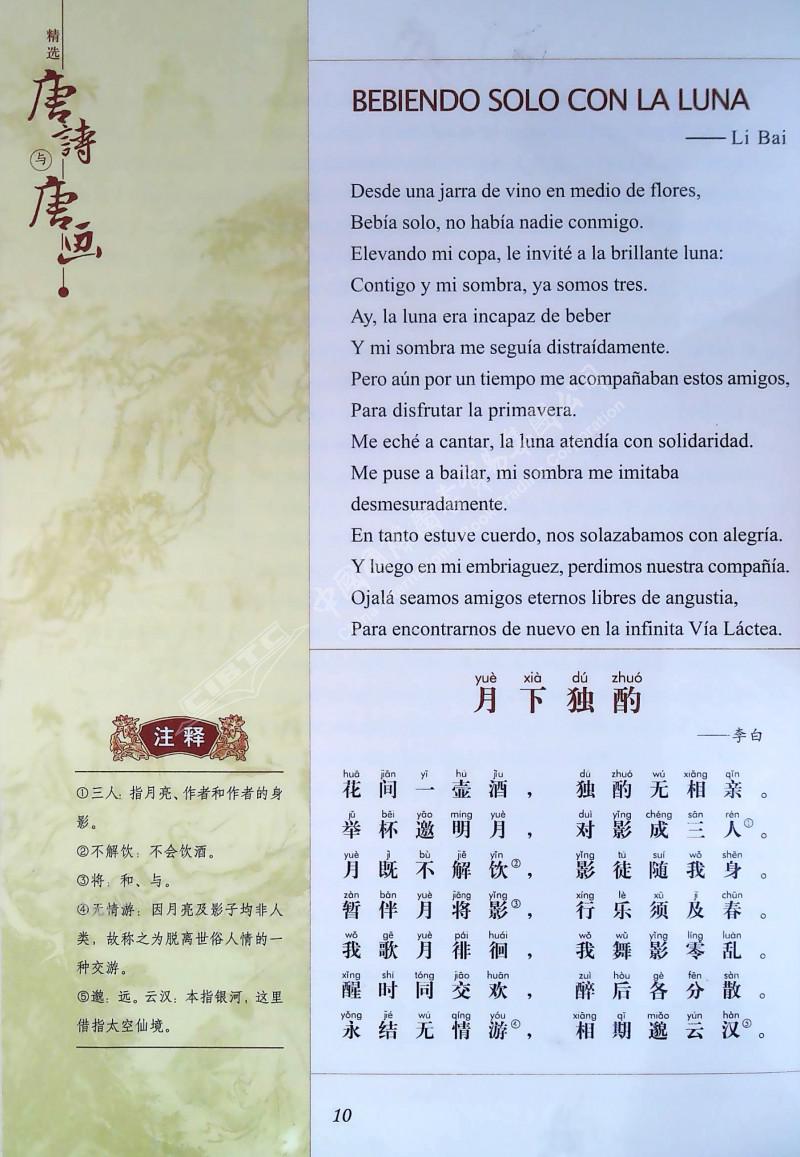 精选
唐詩
与
唐画
BEBIENDO SOLO CON LA LUNA
——Li Bai
Desde una jarra de vino en medio de flores,
Bebía solo, no había nadie conmigo.
Elevando mi copa, le invité a la brillante luna:
Contigo y mi sombra, ya somos tres.
Ay, la luna era incapaz de beber
Y mi sombra me seguía distraídamente.
Pero aún por un tiempo me acompañaban estos amigos,
Para disfrutar la primavera.
Me eché a cantar, la luna atendía con solidaridad.
Me puse a bailar, mi sombra me imitaba
desmesuradamente.
En tanto estuve cuerdo, nos solazabamos con alegría.
Y luego en mi embriaguez, perdimos nuestra compañía.
Ojalá seamos amigos eternos libres de angustia,
Para encontrarnos de nuevo en la infinita Vía Láctea.
yuè xià dú zhuó
月下独酌
——李白
huā jiān yī hú jiǔ dú zhuó wú xiāng qīn
花间一壶酒，独酌无相亲。
jǔ bēi yāo míng yuè duì yǐng chéng sān rén
举杯邀明月，对影成三人①。
yuè jì bù jiě yǐn yǐng tú suí wǒ shēn
月既不解饮②，影徒随我身。
zàn bàn yuè jiāng yǐng xíng lè xū jí chūn
暂伴月将影③，行乐须及春。
wǒ gē yuè pái huái wǒ wǔ yǐng líng luàn
我歌月徘徊，我舞影零乱。
xǐng shí tóng jiāo huān zuì hòu gè fēn sàn
醒时同交欢，醉后各分散。
yǒng jié wú qíng yóu xiāng qī miǎo yún hàn
永结无情游④，相期邈云汉⑤。
注释
①三人：指月亮、作者和作者的身
影。
②不解饮：不会饮酒。
③将：和、与。
④无情游：因月亮及影子均非人
类，故称之为脱离世俗人情的一
种交游。
⑤邈：远。云汉：本指银河，这里
借指太空仙境。
10
CIBTC